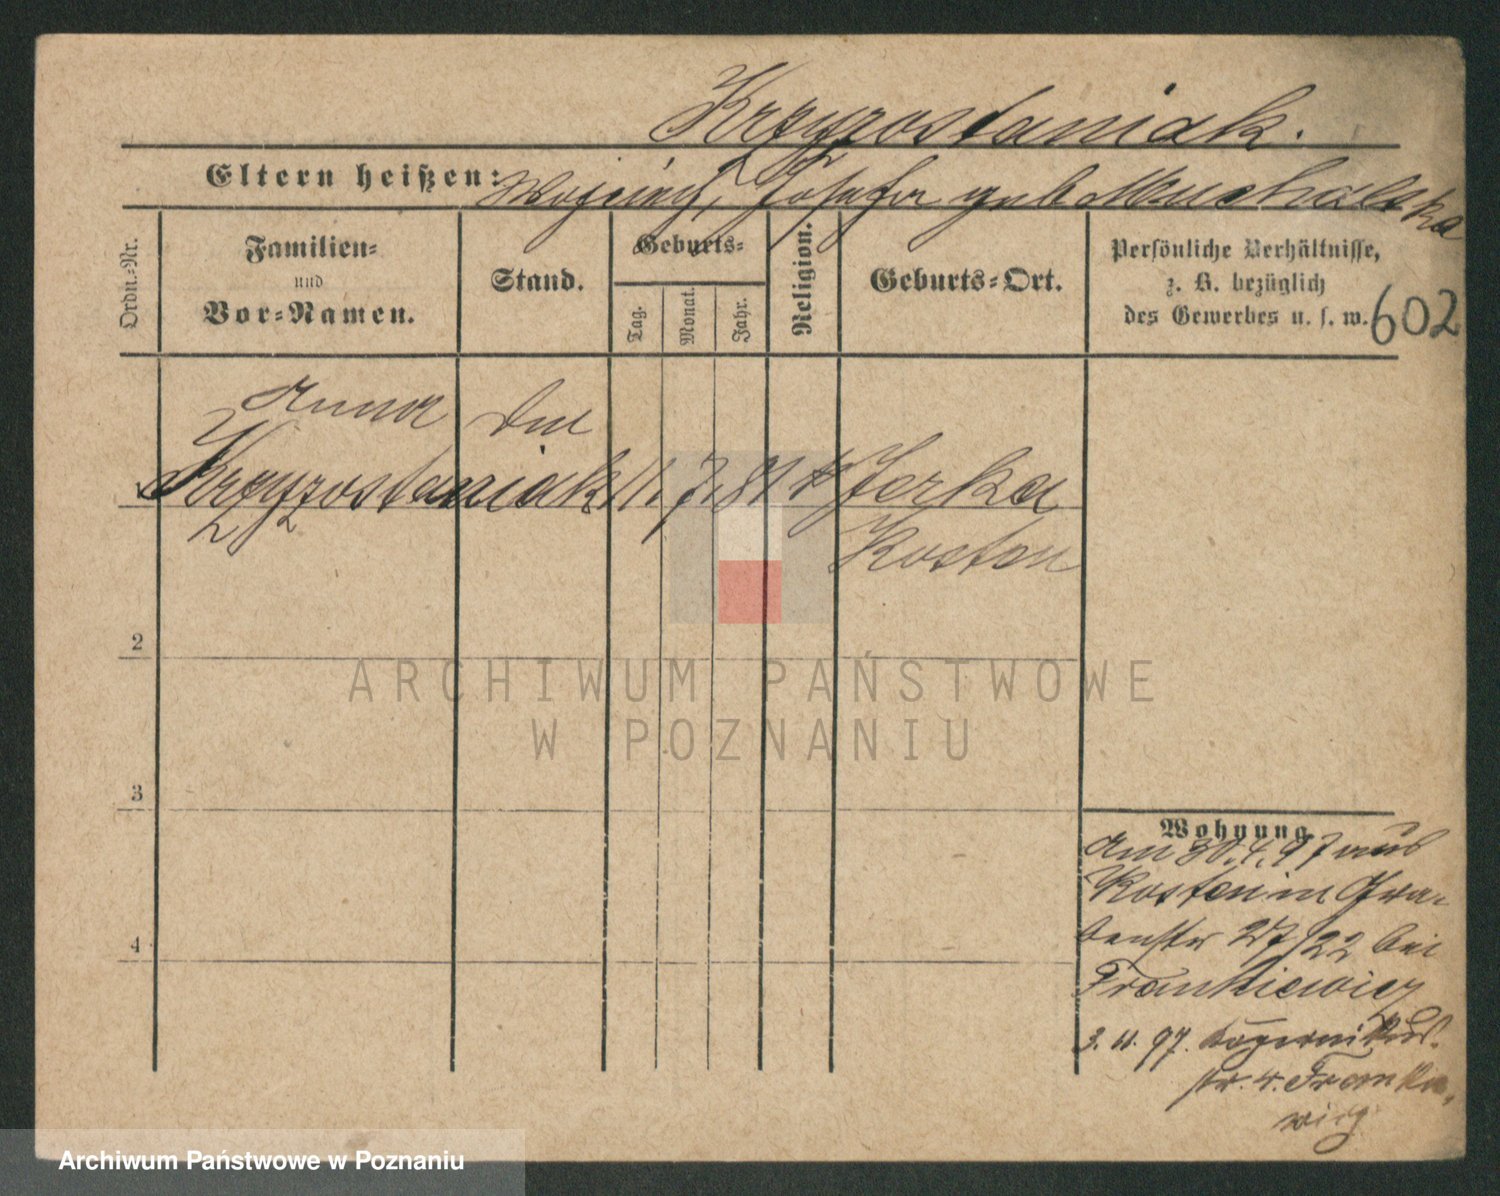 Krzyzostaniak.
Eltern heißen: Wojcieh, Josefa geb Muchalska
Ordn.-Nr.
Familien-
und
Vor-Namen.
Stand.
Geburts-
Tag.
Monat.
Jahr.
Religion.
Geburts-Ort.
Persönliche Verhältnisse,
z. B. bezüglich
des Gewerbes u. s. w.
602
Anna
Krzyzostaniak 11. 7. 81 k Jerka
Kosten
2
3
4
Wohnung
Am 30.4.97 aus
Kosten in Gra-
benstr 27/22 bei
Frankiewicz
3. 11. 97. Kopernikus-
str. 4. Franke-
wicz
ARCHIWUM PAŃSTWOWE
W POZNANIU
Archiwum Państwowe w Poznaniu